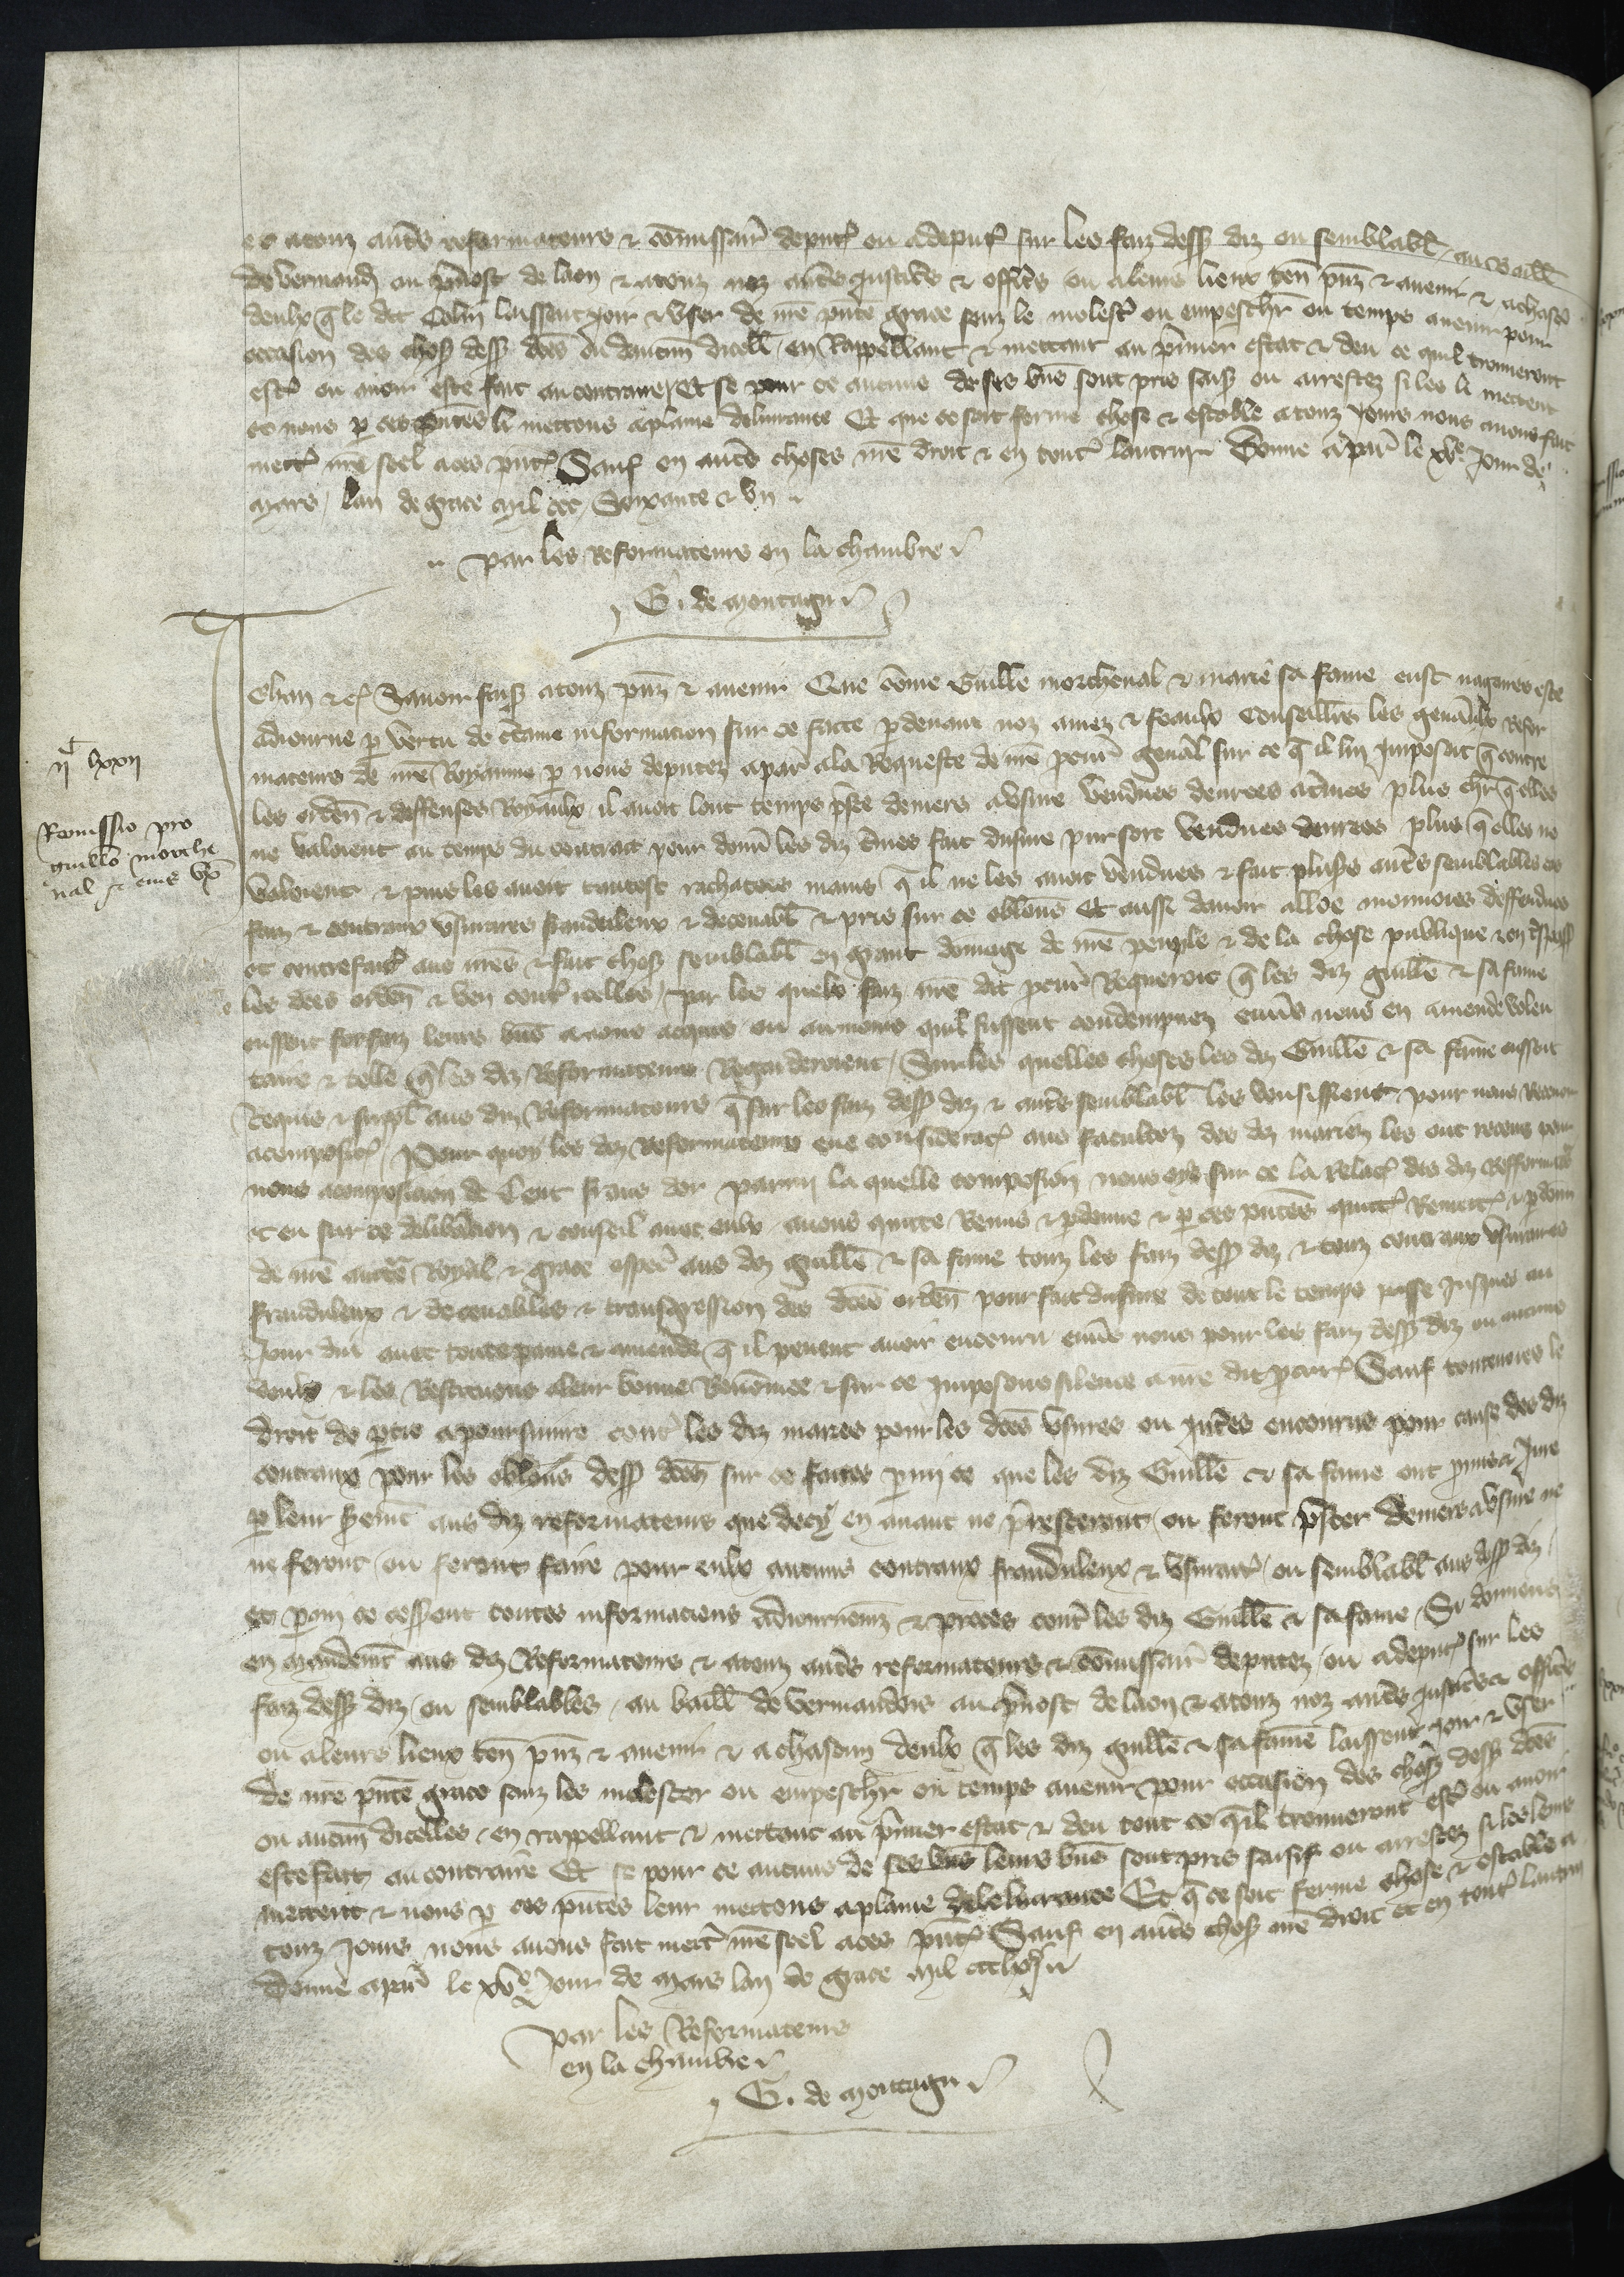 et a touz autres reformateurs & comissair deputez ou a deputer sur les faiz dessus diz ou semblabl au baill
de vermend ou prevost de laon & a touz noz autres justiciers & officiers ou a leurs lieux ten presenz & avenir & a chascun
deulx que le dit Colin laissent joir & user de nre pnte grace sanz le molester ou empeschier ou temps avenir pour
occasion des choses dess dces ou daucun dicell en Rappellant & mettant au premier estat & deu ce quil trouveront
estre ou avoir este fait au contraire Et se pour ce aucuns de ses biens sont pris saisiz ou arrestez si les li mettent
et nous par ces pntes li mettons a plaine delivrance Et que ce soit ferme chose & estable a touz jours nous avons fait
mettre nre seel a ces pntes Sauf en autres choses nre droit & en toutes lautrui Donne a paris le xve jour de
mars lan de grace mil ccc Soixante & un
par les Reformateurs en la chambre
G. de montagu
Jehan &c Savoir faisons a touz pnz & avenir Que comme Guille morcheval & marie sa fame eust nagueres este
adjourne par vertu de certaine informacion sur ce faicte par devant noz amez & feaulx Conseilliers les generaulx Refor
mateurs de nre Royaume par nous deputez a paris a la Requeste de nre procur general sur ce que il lui Imposoit que contre
les orden & deffenses Royaulx il avoit lont temps preste deniers a usure vendues denrees a termes plus chier que elles
ne valoient au temps du contract pour donner les diz termes fait dusure pur sort vendues denrees plus que elles ne
valoient & puis les avoit tantost rachatees mains que il ne les avoit vendues & fait plusieurs autres semblables
faiz & contraux usuraires frauduleux & decevabl & pris sur ce obligons Et aussi davoir alloe monnoies deffendues
et contrefaites aus nres & fait choses semblabl en grant domage de nre peuple & de la chose publique & en
les dces orden & ven contre icelles par les quelx faiz nre dit procur Requeroit que les diz guille & sa fame
eussent forfaiz leurs biens a nous acquis ou au moins quil fussent condempnez envers nous en amende volen
taire & telle que les diz Reformateurs Regarderoient Sur les quelles choses les diz Guille & sa fame eussent
Requis & suppl aus diz Reformateurs que sur les faiz dess diz & autres semblabl les voulsissent pour nous Recevoir
a composicion Pour quoy les diz Reformateurs eue consideracion aus facultez des diz mariez les ont receus pour
nous a composicion de Cent frans dor parmi la quelle composicion nous oye sur ce la Relacion des diz Refformateurs
& eu sur ce deliberacion & conseil avec eulx avons quitte Remis & pardonne & par ces pntes quittons Remettons & pardonn
de nre auctorite Royal & grace especial aus diz guille & sa fame touz les faiz dess diz & touz contraux usuraires
frauduleux & decevables & transgression des dces orden pour fait dusure de tout le temps passe jusques au
jour dui avec toute paine & amende que il pevent avoir encouru envers nous pour les faiz dess diz ou aucuns
deulx & les Restituons a leur bonne Renommee & sur ce imposons silence a nre dit procur Sauf toutevoies le
droit de partie a poursuivre contre les diz mariez pour les dces usures ou interes encourus pour cause des diz
contraux pour les obligons dess dces sur ce faites parmi ce que les diz Guille & sa fame ont promis & jure
par leur serment aus diz reformateurs que decy en avant ne presteront ou feront prester deniers a usure ne
ne feront ou feront faire pour eulx aucuns contraux frauduleux & usuraires ou semblabl aus dess diz
et parmi ce cessent toutes informacions adjournemens & proces contre les diz Guille & sa fame Si donnons
en mandement aus diz Reformateurs & a touz autres reformateurs & comissair deputez ou a deputer sur les
faiz dess diz ou semblables au baill de vermandois au prevost de laon & a touz noz autres justiciers & officiers
ou a leurs lieux ten pnz & avenir & a chascun deulx que les diz guille & sa fame laissent joir & user
de nre pnte grace sanz les molester ou empeschier ou temps avenir pour occasion des choses dess dces
ou aucun dicelles en rappellant & mettant au premier estat & deu tout ce quil trouveront estre ou avoir
este fait au contraire Et se pour ce aucuns de ses biens leurs biens sont pris saisiz ou arrestez si les leurs
mettent & nous par ces pntes leur mettons a plaine delivrance Et que ce soit ferme chose & estable a
touz jours nous avons fait mettre nre seel a ces pntes Sauf en autres choses nre droit et en toutes lautrui
Donne a paris le xve jour de mars lan de grace mil ccclxj
par les Reformateurs
en la chambre
G. de montagu
ijc lxxij
Remissio pro
guillo morche
val & eius ux